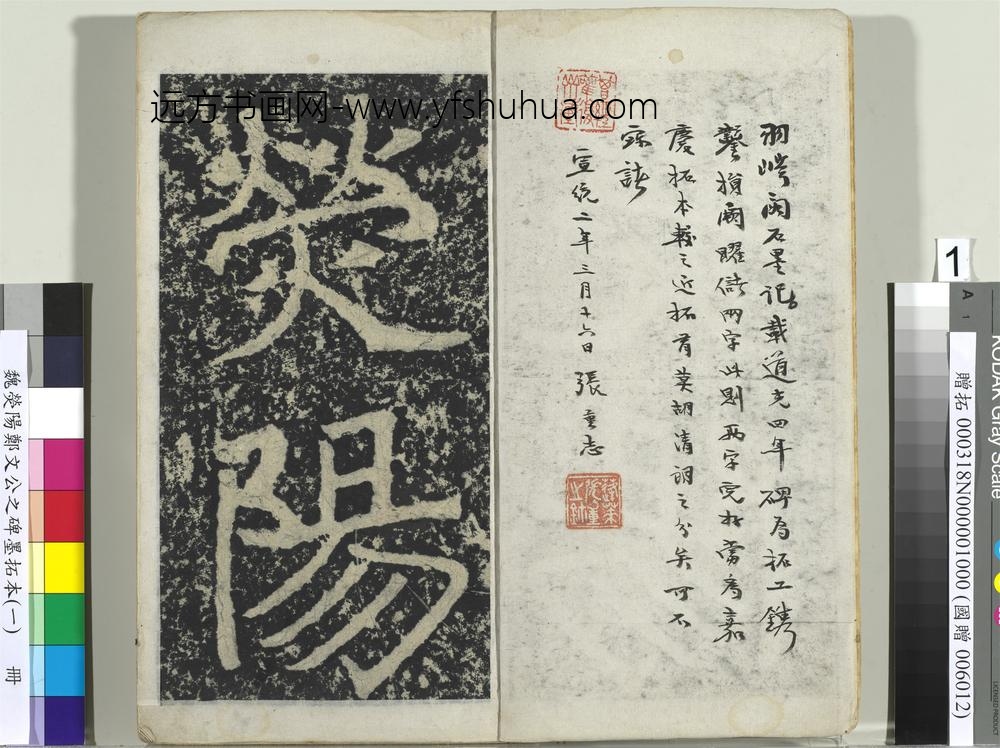 远方书画网-www.yfshuhua.com
羽閣石墨記載道光四年碑為拓工鐫
鑿損闕曜儲兩字此則兩字完好當為嘉
慶拓本較之近拓有清之分矣可不
寶諸
宣統二年三月十六日 張重志
熒陽
魏熒陽鄭文公之碑墨拓本(一) 冊
1
A 1
贈拓 000318N000001000 (國贈 006012)
KODAK Gray Scale